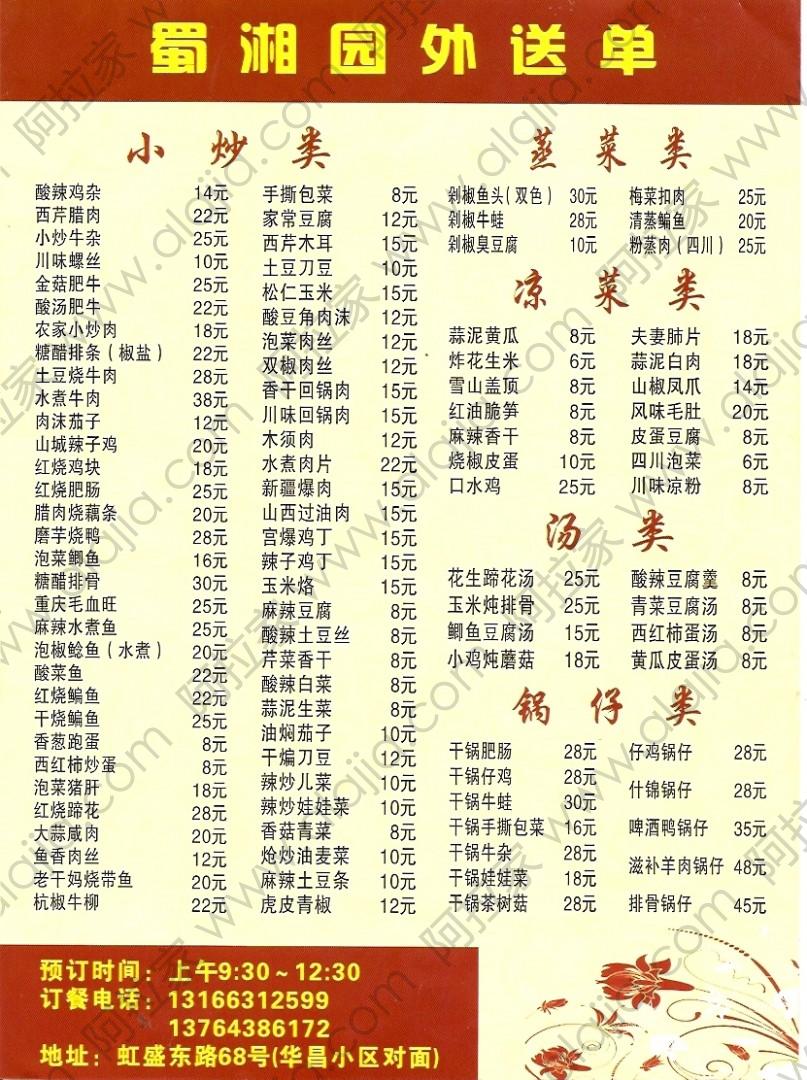 蜀湘园外送单
小炒类
酸辣鸡杂 14元
西芹腊肉 22元
小炒牛杂 25元
川味螺丝 10元
金菇肥牛 25元
酸汤肥牛 22元
农家小炒肉 18元
糖醋排条（椒盐） 22元
土豆烧牛肉 28元
水煮牛肉 38元
肉沫茄子 12元
山城辣子鸡 20元
红烧鸡块 18元
红烧肥肠 25元
腊肉烧藕条 20元
磨芋烧鸭 28元
泡菜鲫鱼 16元
糖醋排骨 30元
重庆毛血旺 25元
麻辣水煮鱼 25元
泡椒鲶鱼（水煮） 20元
酸菜鱼 22元
红烧鳊鱼 22元
干烧鳊鱼 25元
香葱跑蛋 8元
西红柿炒蛋 8元
泡菜猪肝 18元
红烧蹄花 28元
大蒜咸肉 20元
鱼香肉丝 12元
老干妈烧带鱼 20元
杭椒牛柳 22元
手撕包菜 8元
家常豆腐 12元
西芹木耳 15元
土豆刀豆 10元
松仁玉米 15元
酸豆角肉沫 12元
泡菜肉丝 12元
双椒肉丝 12元
香干回锅肉 15元
川味回锅肉 15元
木须肉 12元
水煮肉片 22元
新疆爆肉 15元
山西过油肉 15元
宫爆鸡丁 15元
辣子鸡丁 15元
玉米烙 15元
麻辣豆腐 8元
酸辣土豆丝 8元
芹菜香干 8元
酸辣白菜 8元
蒜泥生菜 8元
油焖茄子 10元
干煸刀豆 12元
辣炒儿菜 10元
辣炒娃娃菜 10元
香菇青菜 8元
炝炒油麦菜 10元
麻辣土豆条 10元
虎皮青椒 12元
蒸菜类
剁椒鱼头（双色） 30元
剁椒牛蛙 28元
剁椒臭豆腐 10元
梅菜扣肉 25元
清蒸鳊鱼 20元
粉蒸肉（四川） 25元
凉菜类
蒜泥黄瓜 8元
炸花生米 6元
雪山盖顶 8元
红油脆笋 8元
麻辣香干 8元
烧椒皮蛋 10元
口水鸡 25元
夫妻肺片 18元
蒜泥白肉 18元
山椒凤爪 14元
风味毛肚 20元
皮蛋豆腐 8元
四川泡菜 6元
川味凉粉 8元
汤类
花生蹄花汤 25元
玉米炖排骨 25元
鲫鱼豆腐汤 15元
小鸡炖蘑菇 18元
酸辣豆腐羹 8元
青菜豆腐汤 8元
西红柿蛋汤 8元
黄瓜皮蛋汤 8元
锅仔类
干锅肥肠 28元
干锅仔鸡 28元
干锅牛蛙 30元
干锅手撕包菜 16元
干锅牛杂 28元
干锅娃娃菜 18元
干锅茶树菇 28元
仔鸡锅仔 28元
什锦锅仔 28元
啤酒鸭锅仔 35元
滋补羊肉锅仔 48元
排骨锅仔 45元
预订时间：上午9:30～12:30
订餐电话：13166312599
13764386172
地址：虹盛东路68号(华昌小区对面)